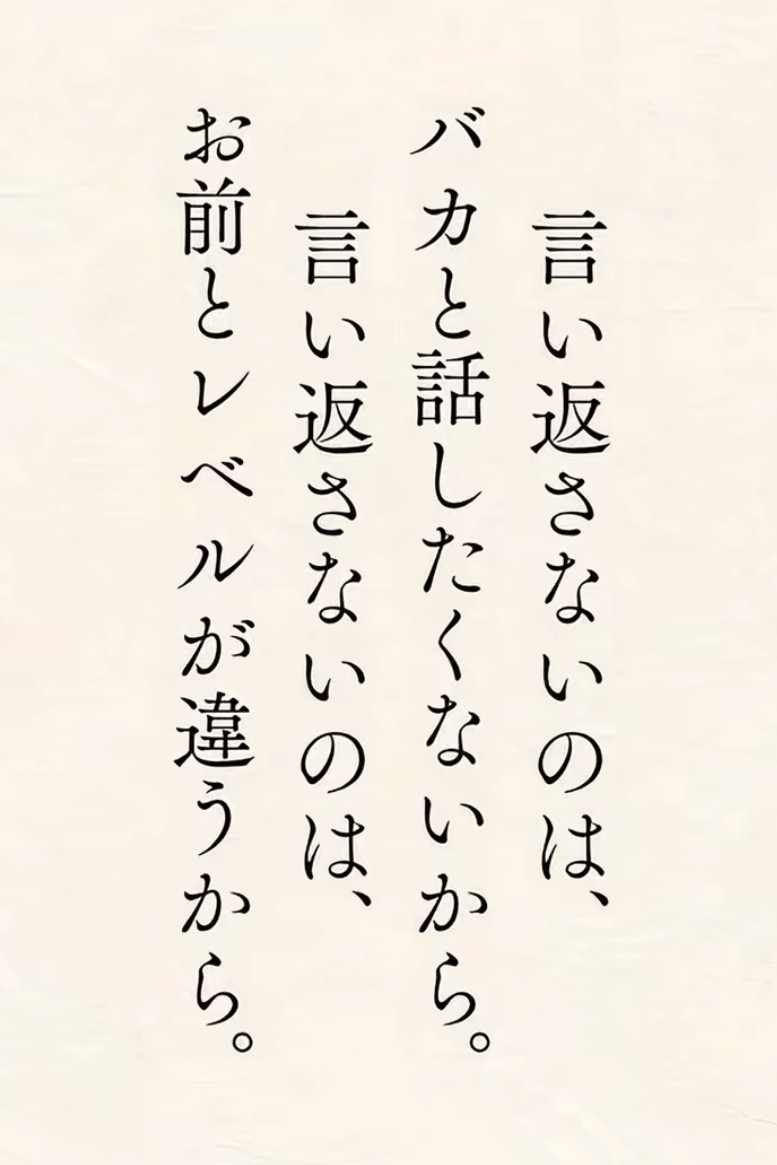 言い返さないのは、
バカと話したくないから。
言い返さないのは、
お前とレベルが違うから。